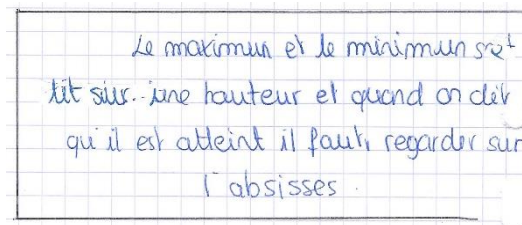 Le maximun et le minimun se
lit sur une hauteur et quand on dit
qu'il est atteint il faut, regarder sur
l'absisses.